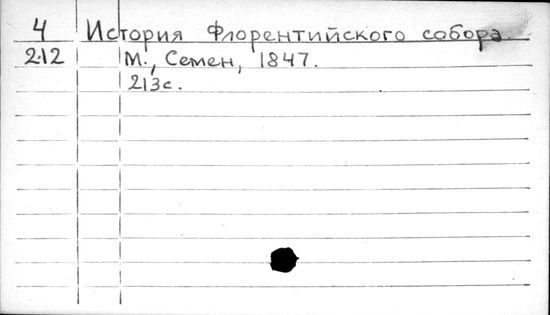 4 История Флорентийского собора.
2.12 М., Семен, 1847.
213с.